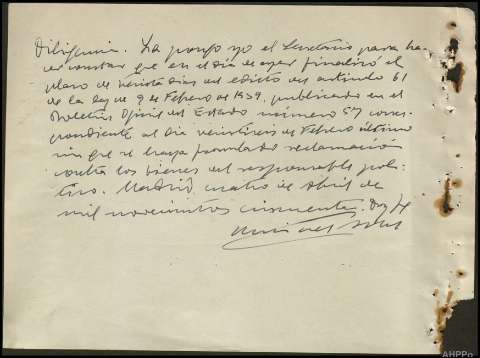 Diligencia. La pongo yo el Secretario para ha-
cer constar que en el día de ayer finalizó el
plazo de treinta días del edicto del artículo 61
de la ley de 9 de Febrero de 1939, publicado en el
Boletín Oficial del Estado número 57 corres-
pondiente al día veintiseis de Febrero último
sin que se haya formulado reclamación
contra los bienes del responsable polí-
tico. Madrid, cuatro de Abril de
mil novecientos cincuenta. Doy fe
AHPPo